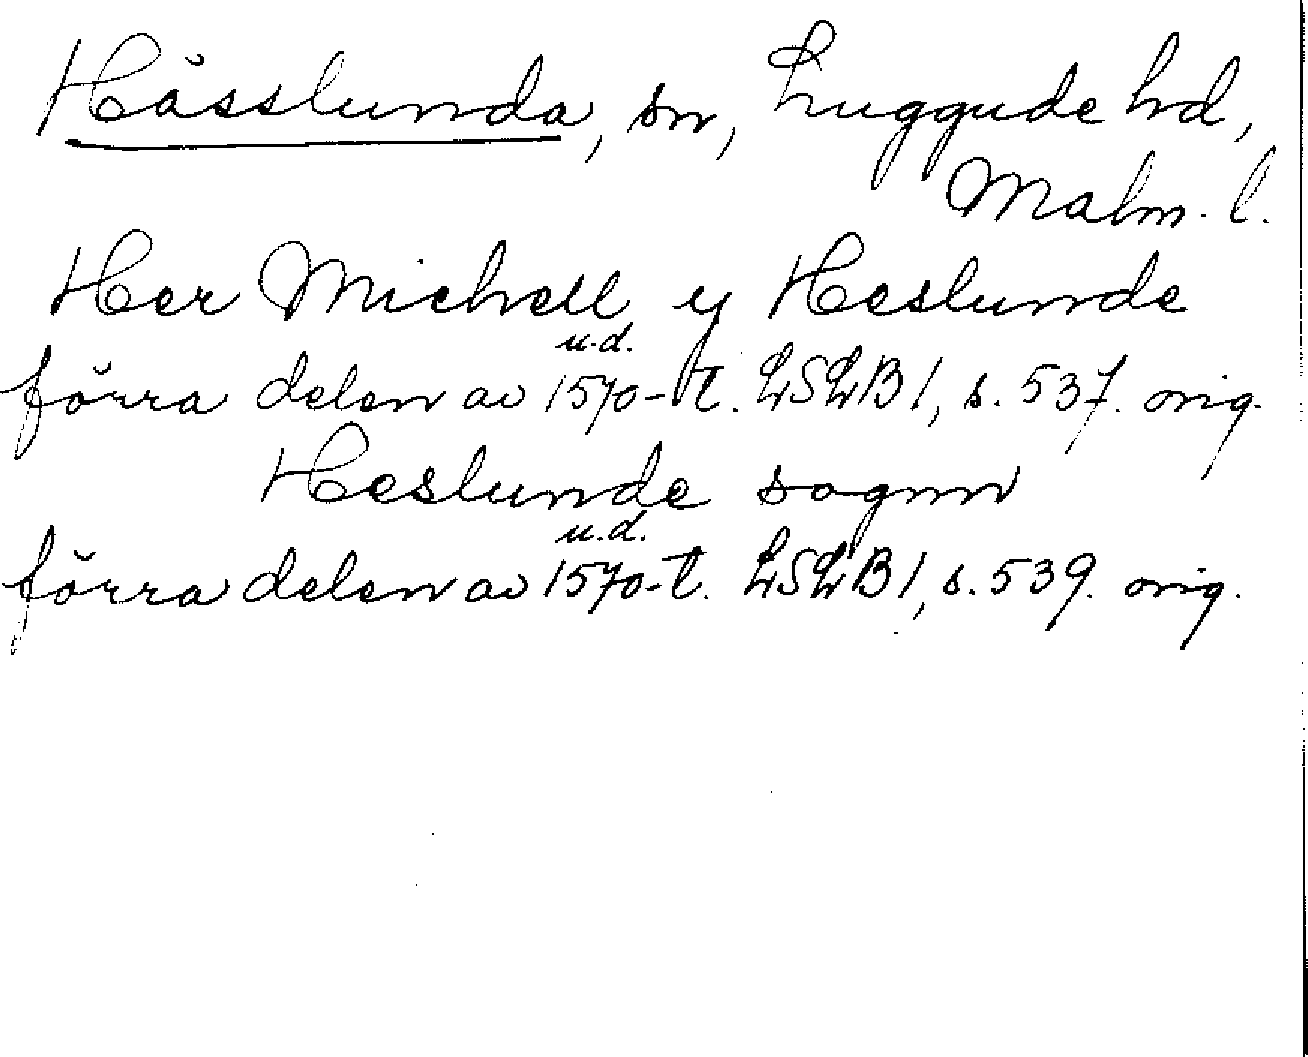 Hässlunda, sn, Luggude hd,
Malm. l.
Her Michell y Heslunde
u.d.
förra delen av 1570-t. LSLB 1, s. 537. orig.
Heslunde sognn
u.d.
förra delen av 1570-t. LSLB 1, s. 539. orig.